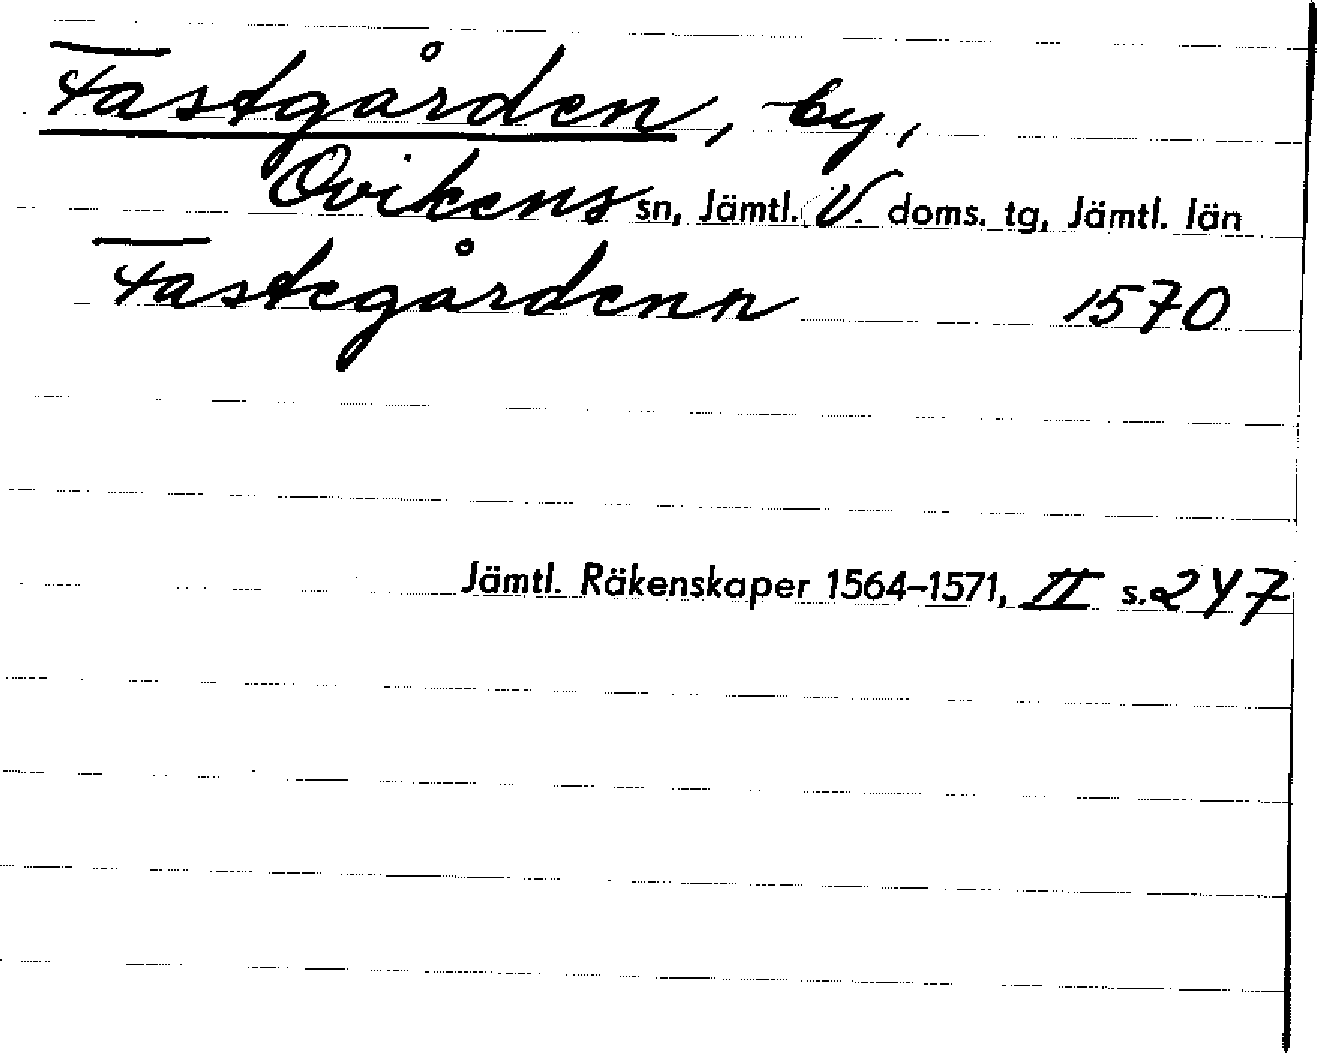 Fastgården, by,
Ovikens sn, Jämtl. V. doms. tg, Jämtl. län
Fastegårdenn 1570
Jämtl. Räkenskaper 1564-1571, II s. 247